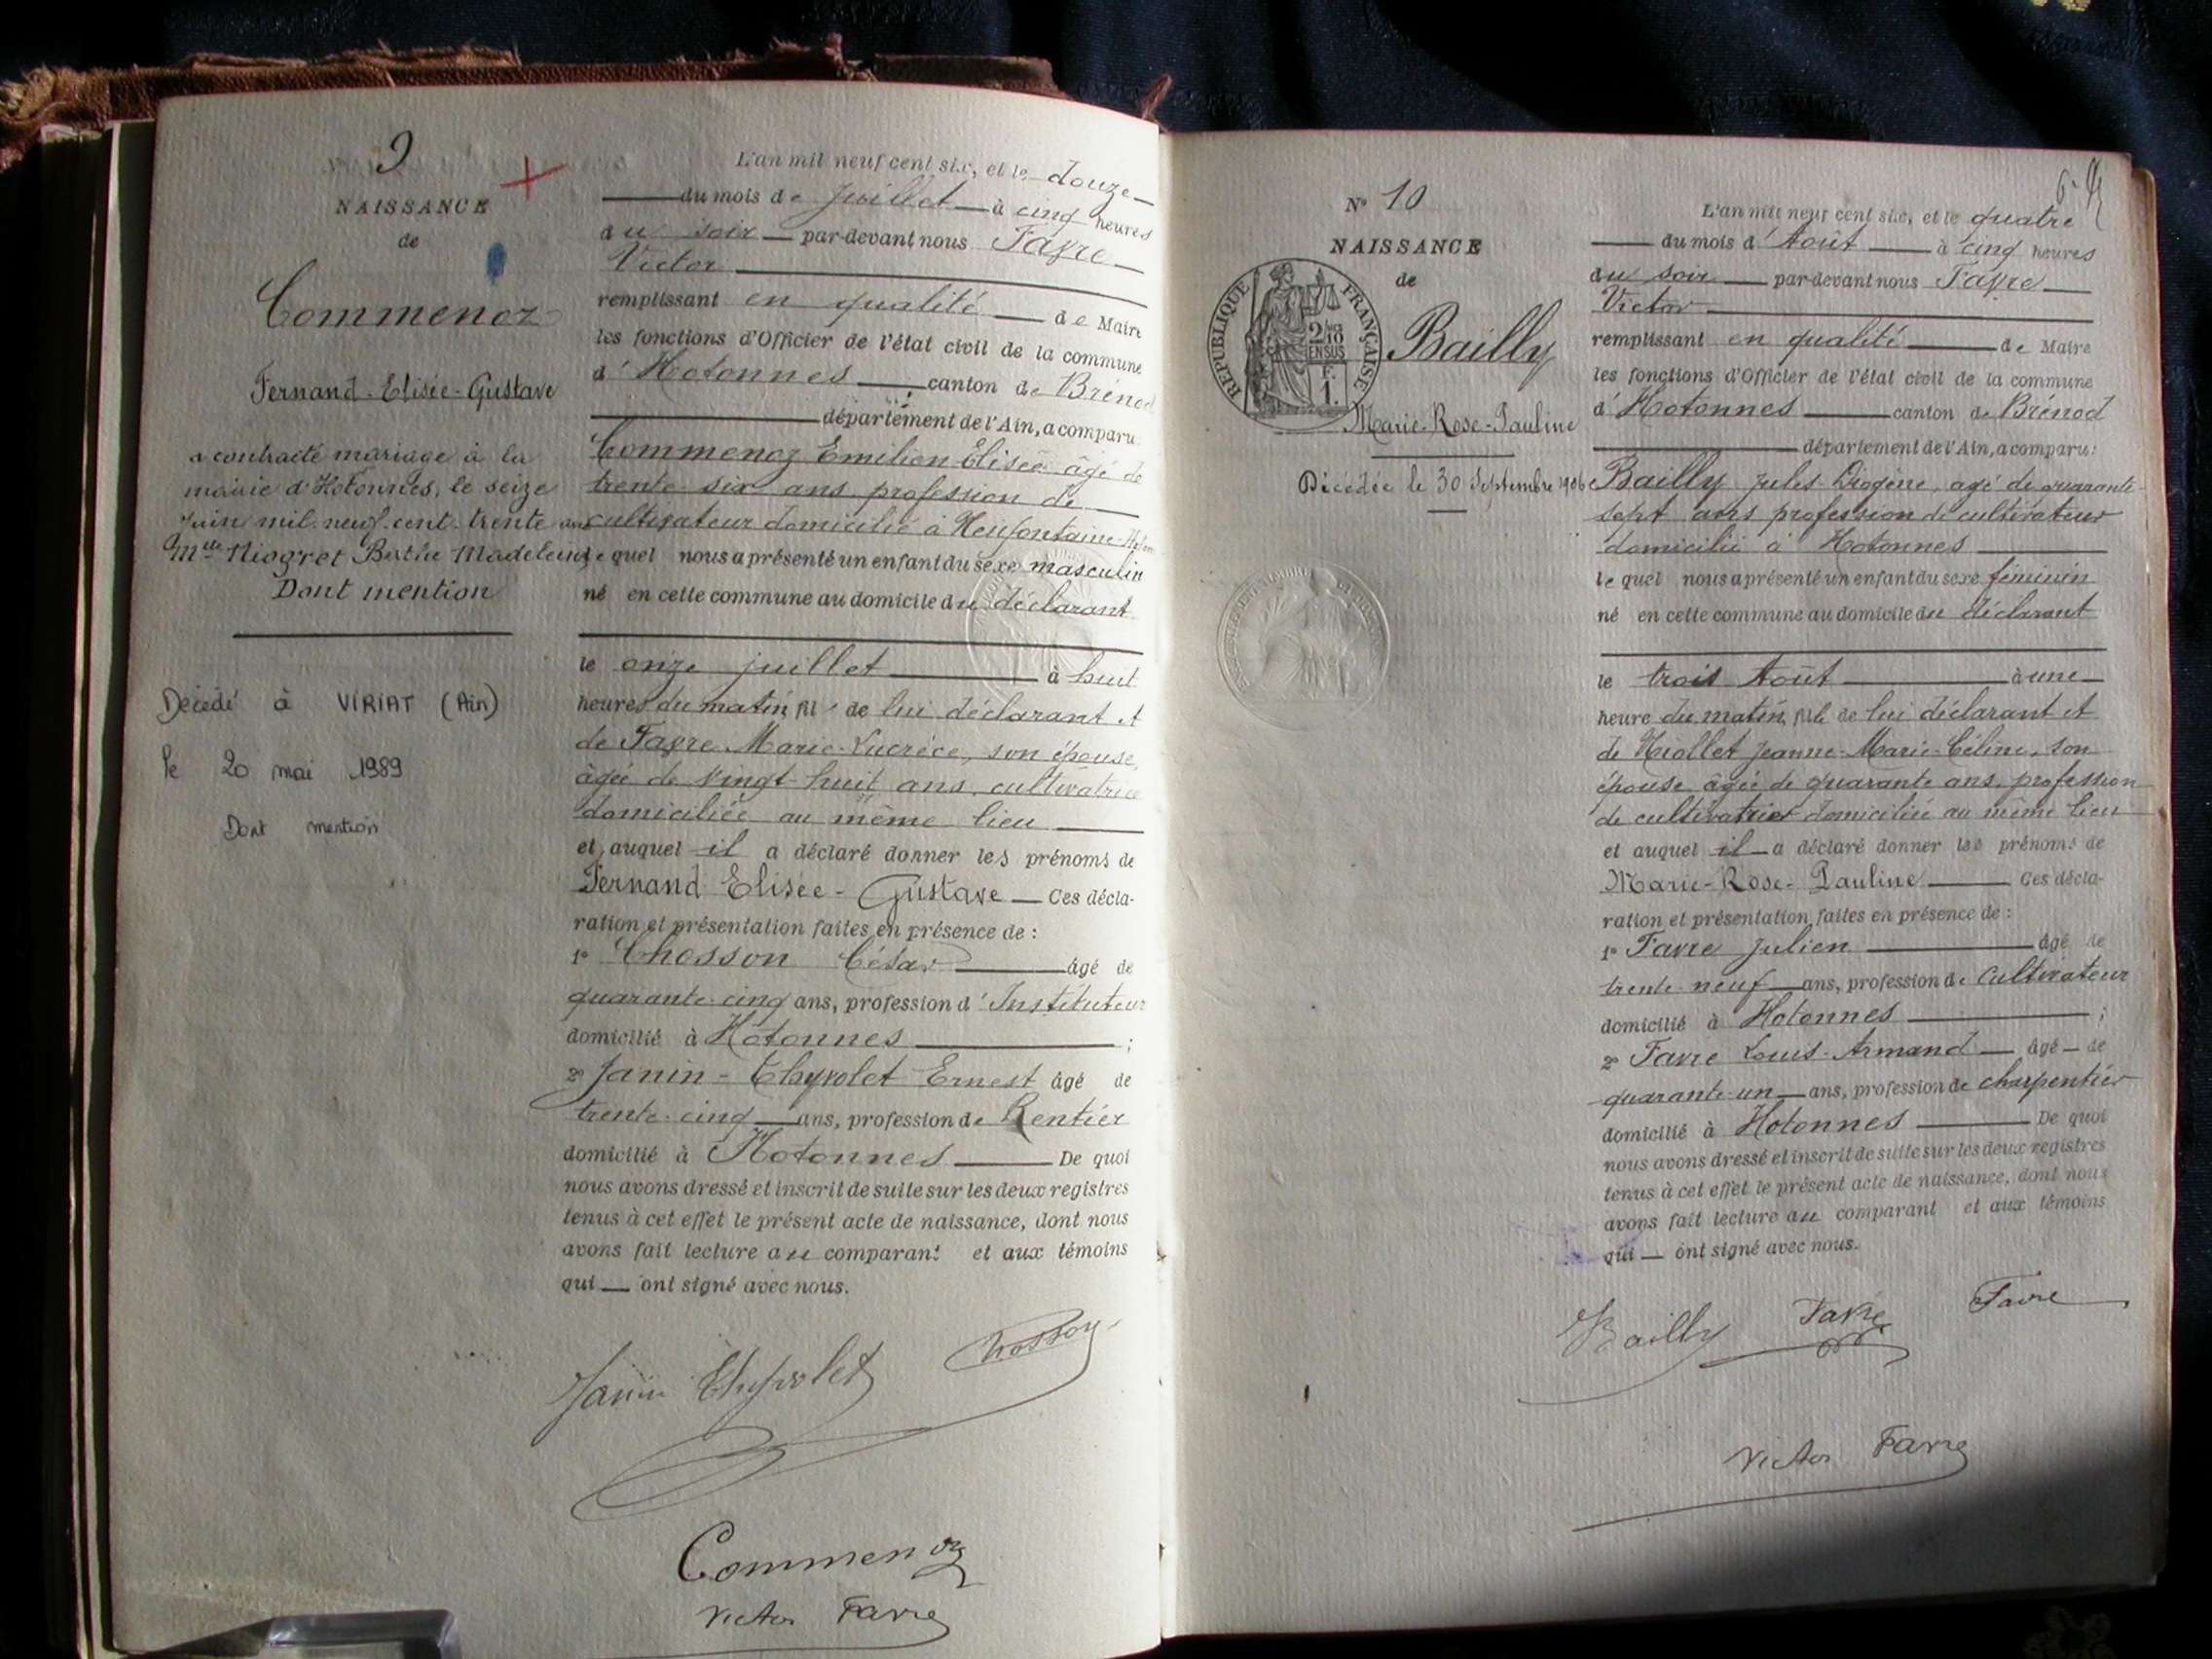 9
NAISSANCE
de
Commenoz
Fernand-Elisée-Gustave
a contracté mariage à la
mairie d'Hotonnes, le seize
Juin mil-neuf-cent-trente
Mlle Niogret Berthe Madeleine
Dont mention
Décédé à VIRIAT (Ain)
le 20 mai 1989
Dont mention
L'an mil neuf cent six, et le douze
du mois de Juillet à cinq heures
du soir par-devant nous Favre
Victor
remplissant en qualité de Maire
les fonctions d'Officier de l'état civil de la commune
d'Hotonnes canton de Brénod
département de l'Ain, a comparu:
Commenoz Emilien Elisée âgé de
trente-six ans profession de
cultivateur domicilié à Neufontaine-
le quel nous a présenté un enfant du sexe masculin
né en cette commune au domicile du déclarant
le onze juillet à huit
heures du matin, fils de lui déclarant et
de Favre Marie-Lucrèce, son épouse,
âgée de vingt-huit ans, cultivatrice
domiciliée au même lieu
et auquel il a déclaré donner les prénoms de
Fernand-Elisée-Gustave Ces décla-
ration et présentation faites en présence de :
1° Chosson César âgé de
quarante-cinq ans, profession d'Instituteur
domicilié à Hotonnes ;
2° Janin-Thyvolet Ernest âgé de
trente-cinq ans, profession de Rentier
domicilié à Hotonnes De quoi
nous avons dressé et inscrit de suite sur les deux registres
tenus à cet effet le présent acte de naissance, dont nous
avons fait lecture au comparant et aux témoins
qui ont signé avec nous.
Janin Thyvolet Chosson
Commenoz
Victor Favre
N° 10
NAISSANCE
de
RÉPUBLIQUE FRANÇAISE
2/10
EN SUS
F.
1.
Bailly
Marie-Rose-Pauline
Décédée le 30 Septembre 1906
L'an mil neuf cent six, et le quatre
du mois d'Août à cinq heures
du soir par-devant nous Favre
Victor
remplissant en qualité de Maire
les fonctions d'Officier de l'état civil de la commune
d'Hotonnes canton de Brénod
département de l'Ain, a comparu:
Bailly Jules-Diogène, âgé de quarante-
sept ans profession de cultivateur
domicilié à Hotonnes
le quel nous a présenté un enfant du sexe féminin
né en cette commune au domicile du déclarant
le trois Août à une
heure du matin, fille de lui déclarant et
de Niollet Jeanne-Marie-Céline, son
épouse âgée de quarante ans, profession
de cultivatrice domiciliée au même lieu
et auquel il a déclaré donner les prénoms de
Marie-Rose-Pauline Ces décla-
ration et présentation faites en présence de :
1° Favre Julien âgé de
trente-neuf ans, profession de Cultivateur
domicilié à Hotonnes ;
2° Favre Louis-Armand âgé de
quarante-un ans, profession de charpentier
domicilié à Hotonnes De quoi
nous avons dressé et inscrit de suite sur les deux registres
tenus à cet effet le présent acte de naissance, dont nous
avons fait lecture au comparant et aux témoins
qui ont signé avec nous.
Bailly Favre Favre
Victor Favre